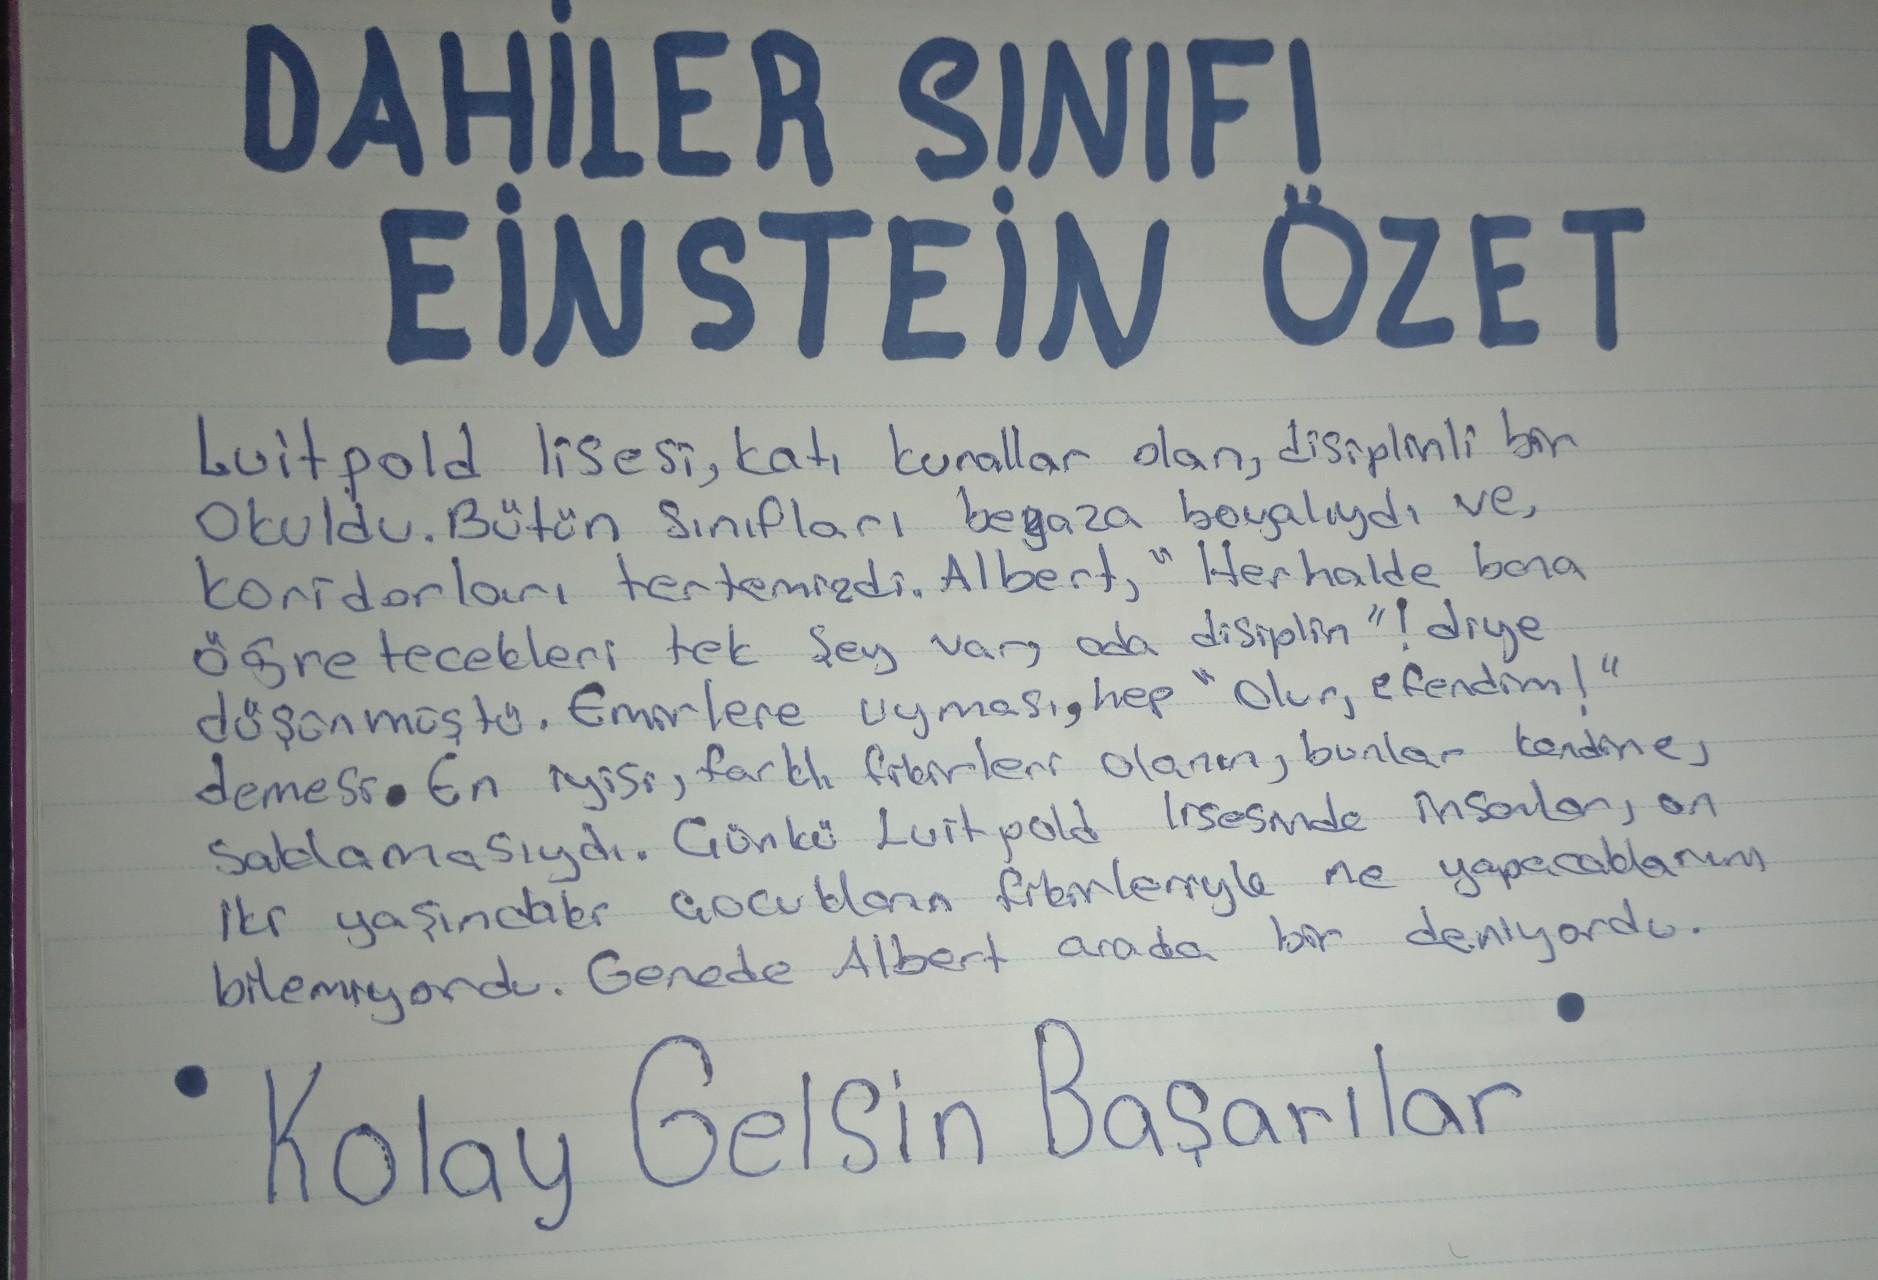 DAHİLER SINIFI
EİNSTEİN ÖZET
Luitpold lisesi, katı kurallar olan, disiplinli bir
Okuldu. Bütün Sınıfları beyaza boyalıydı ve,
koridorları tertemizdi. Albert, "Herhalde bana
öğretecekleri tek şey var, oda disiplin"! diye
düşünmüştü. Emirlere uyması, hep "Olur, efendim!"
demesi. En iyisi, farklı fikirleri olanın, bunlar kendine,
saklamasıydı. Günkü Luitpold lisesinde insanlar, on
iki yaşındaki çocukların fikirleriyle ne yapacaklarını
bilemiyordu. Genede Albert arada bir deniyordu.
• Kolay Gelsin Başarılar •